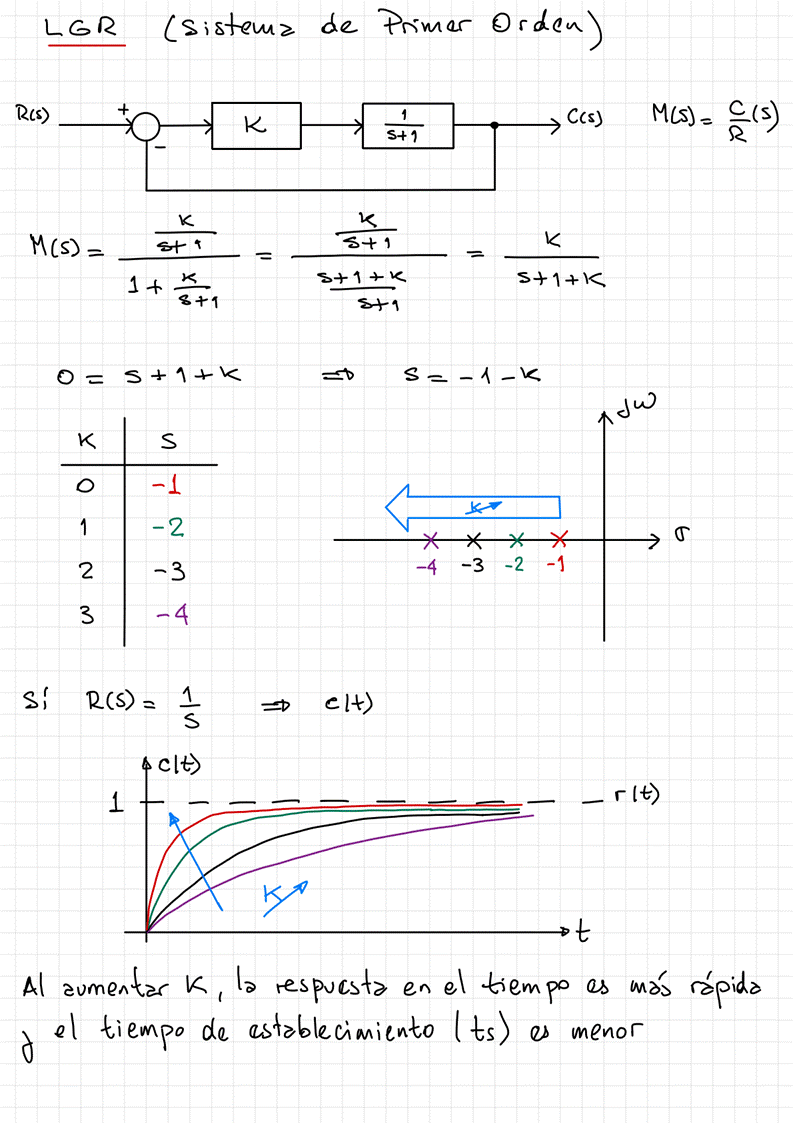 LGR (Sistema de Primer Orden)
R(s) + − K 1/(s+1) C(s) M(s) = C/R (s)
M(s) = (K/(s+1)) / (1 + K/(s+1)) = (K/(s+1)) / ((s+1+K)/(s+1)) = K/(s+1+K)
0 = s+1+K ⇒ s = -1-K
jω
K S
0 -1
1 -2
2 -3
3 -4
K
σ
-4 -3 -2 -1
Sí R(s) = 1/s ⇒ c(t)
c(t)
1 r(t)
K
t
Al aumentar K, la respuesta en el tiempo es más rápida
y el tiempo de establecimiento (ts) es menor